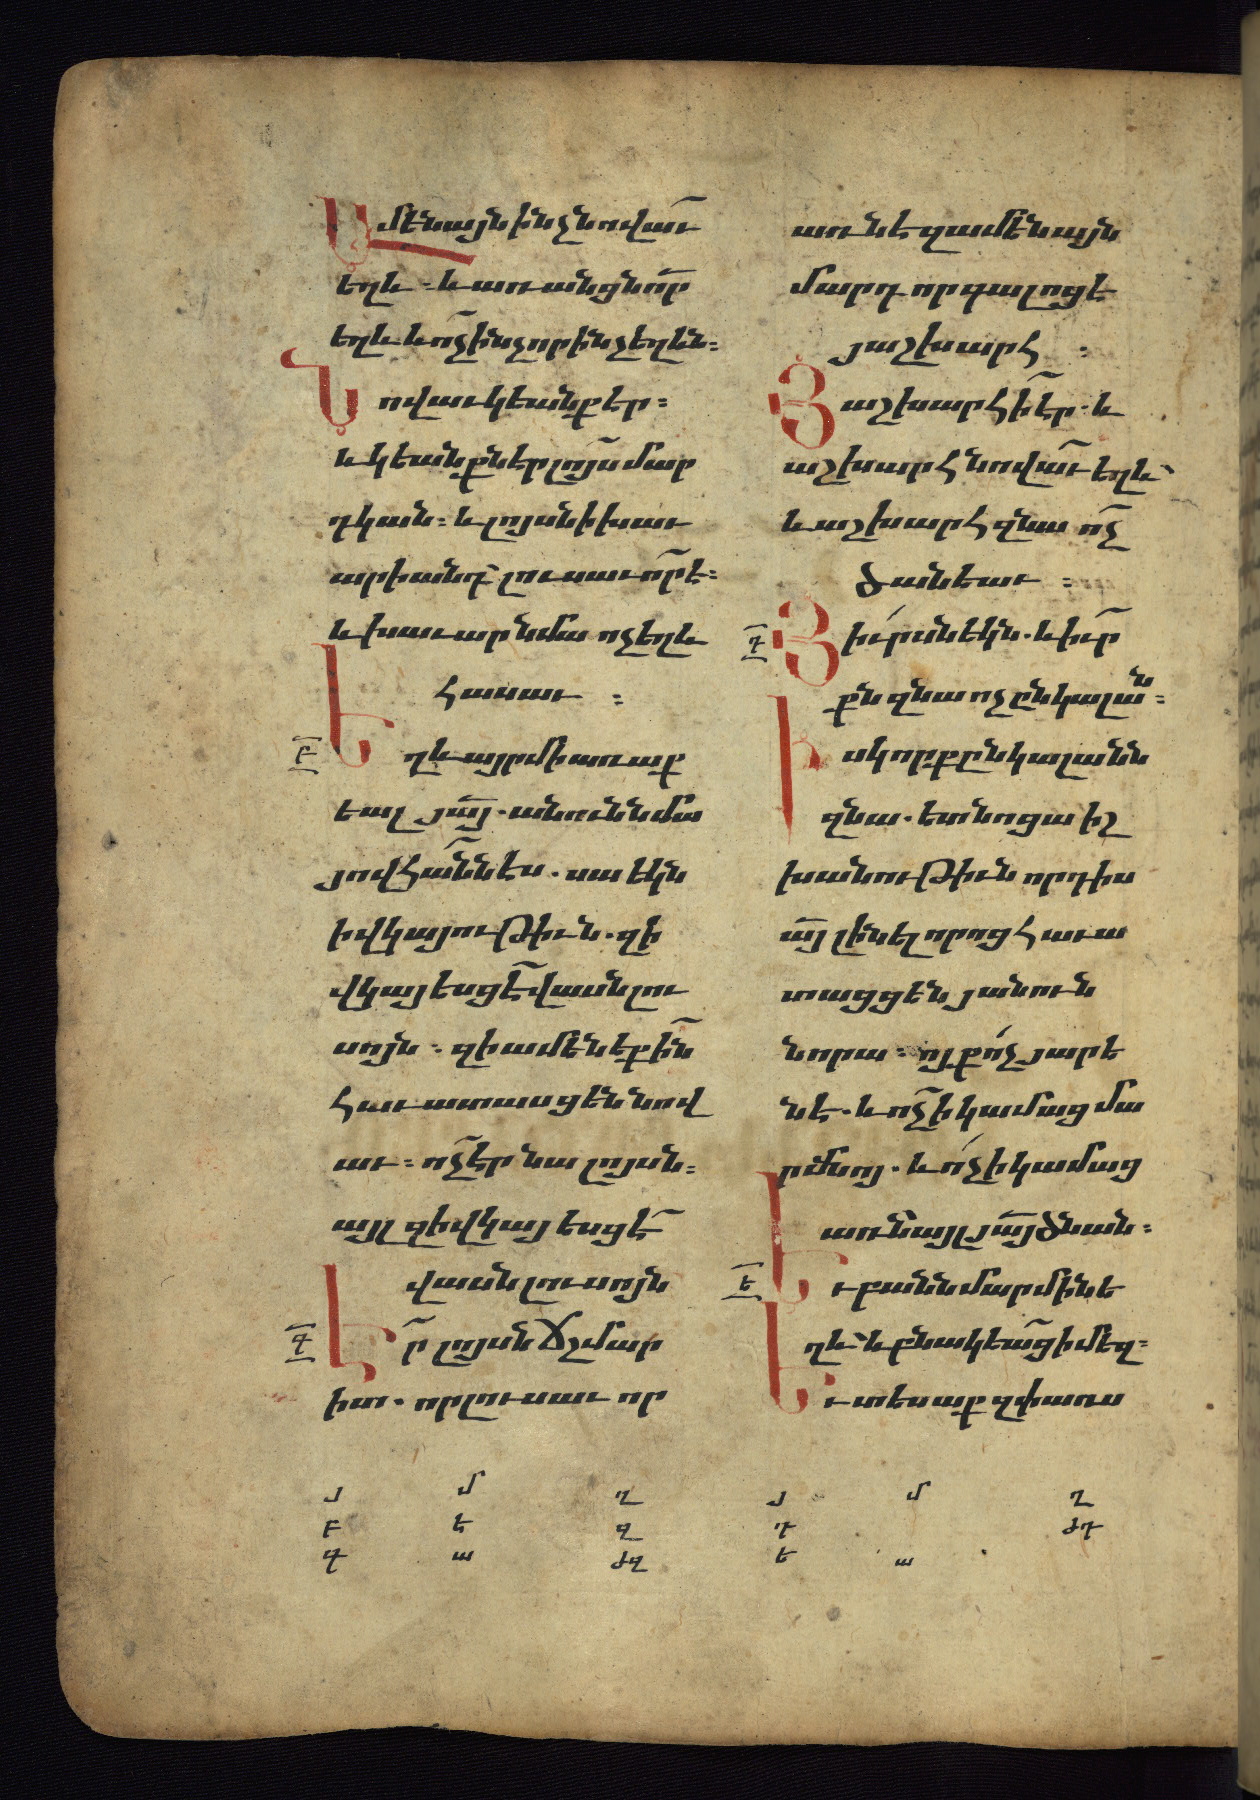 Ամենայն ինչ նովաւ
եղև · և առանց նոր
եղև և ոչինչ որ ինչ եղեն ։
Նովաւ կեանք էր ։
և կեանքն էր լոյս մար
դկան ։ և լոյսն ի խաւ
արի անդ լուսաւորէ ։
և խաւար նմա ոչ եղև
հասաւ ։
բ Եղև այր մի առաք
եալ յայ · անուն նմա
յովհաննէս · սա եկն
ի վկայութիւն · զի
վկայեսցէ վասն լու
սոյն · զի ամենեքին
հաւատասցեն նով
աւ ։ ոչ էր նա լոյսն ։
այլ զի վկայեսցէ
վասն լուսոյն
գ Եր լոյսն ճշմար
իտ · որ լուսաւոր
առնե զամենայն
մարդ որ գալոց է
յաշխարհ ։
Յաշխարհի էր · և
աշխարհ նովաւ եղև
և աշխարհ զնա ոչ
ծանեաւ ։
դ Յիւրսն եկն · և իւր
քն զնա ոչ ընկալան ։
Իսկ որք ընկալանն
զնա · ետ նոցա իշ
խանութիւն որդիս
այ լինել որոց հաւա
տասցեն յանուն
նորա ։ ոյք ոչ յարե
նէ · և ոչ ի կամաց մա
րմնոյ · և ոչ ի կամաց
առն այլ յայ ծնան ։
ե Եւ բանն մարմին ե
ղև և բնակեաց ի մեզ ։
Եւ տեսաք զփառս
յ մ ղ յ մ ղ
բ ե գ դ ժդ
գ ա ժզ ե ա